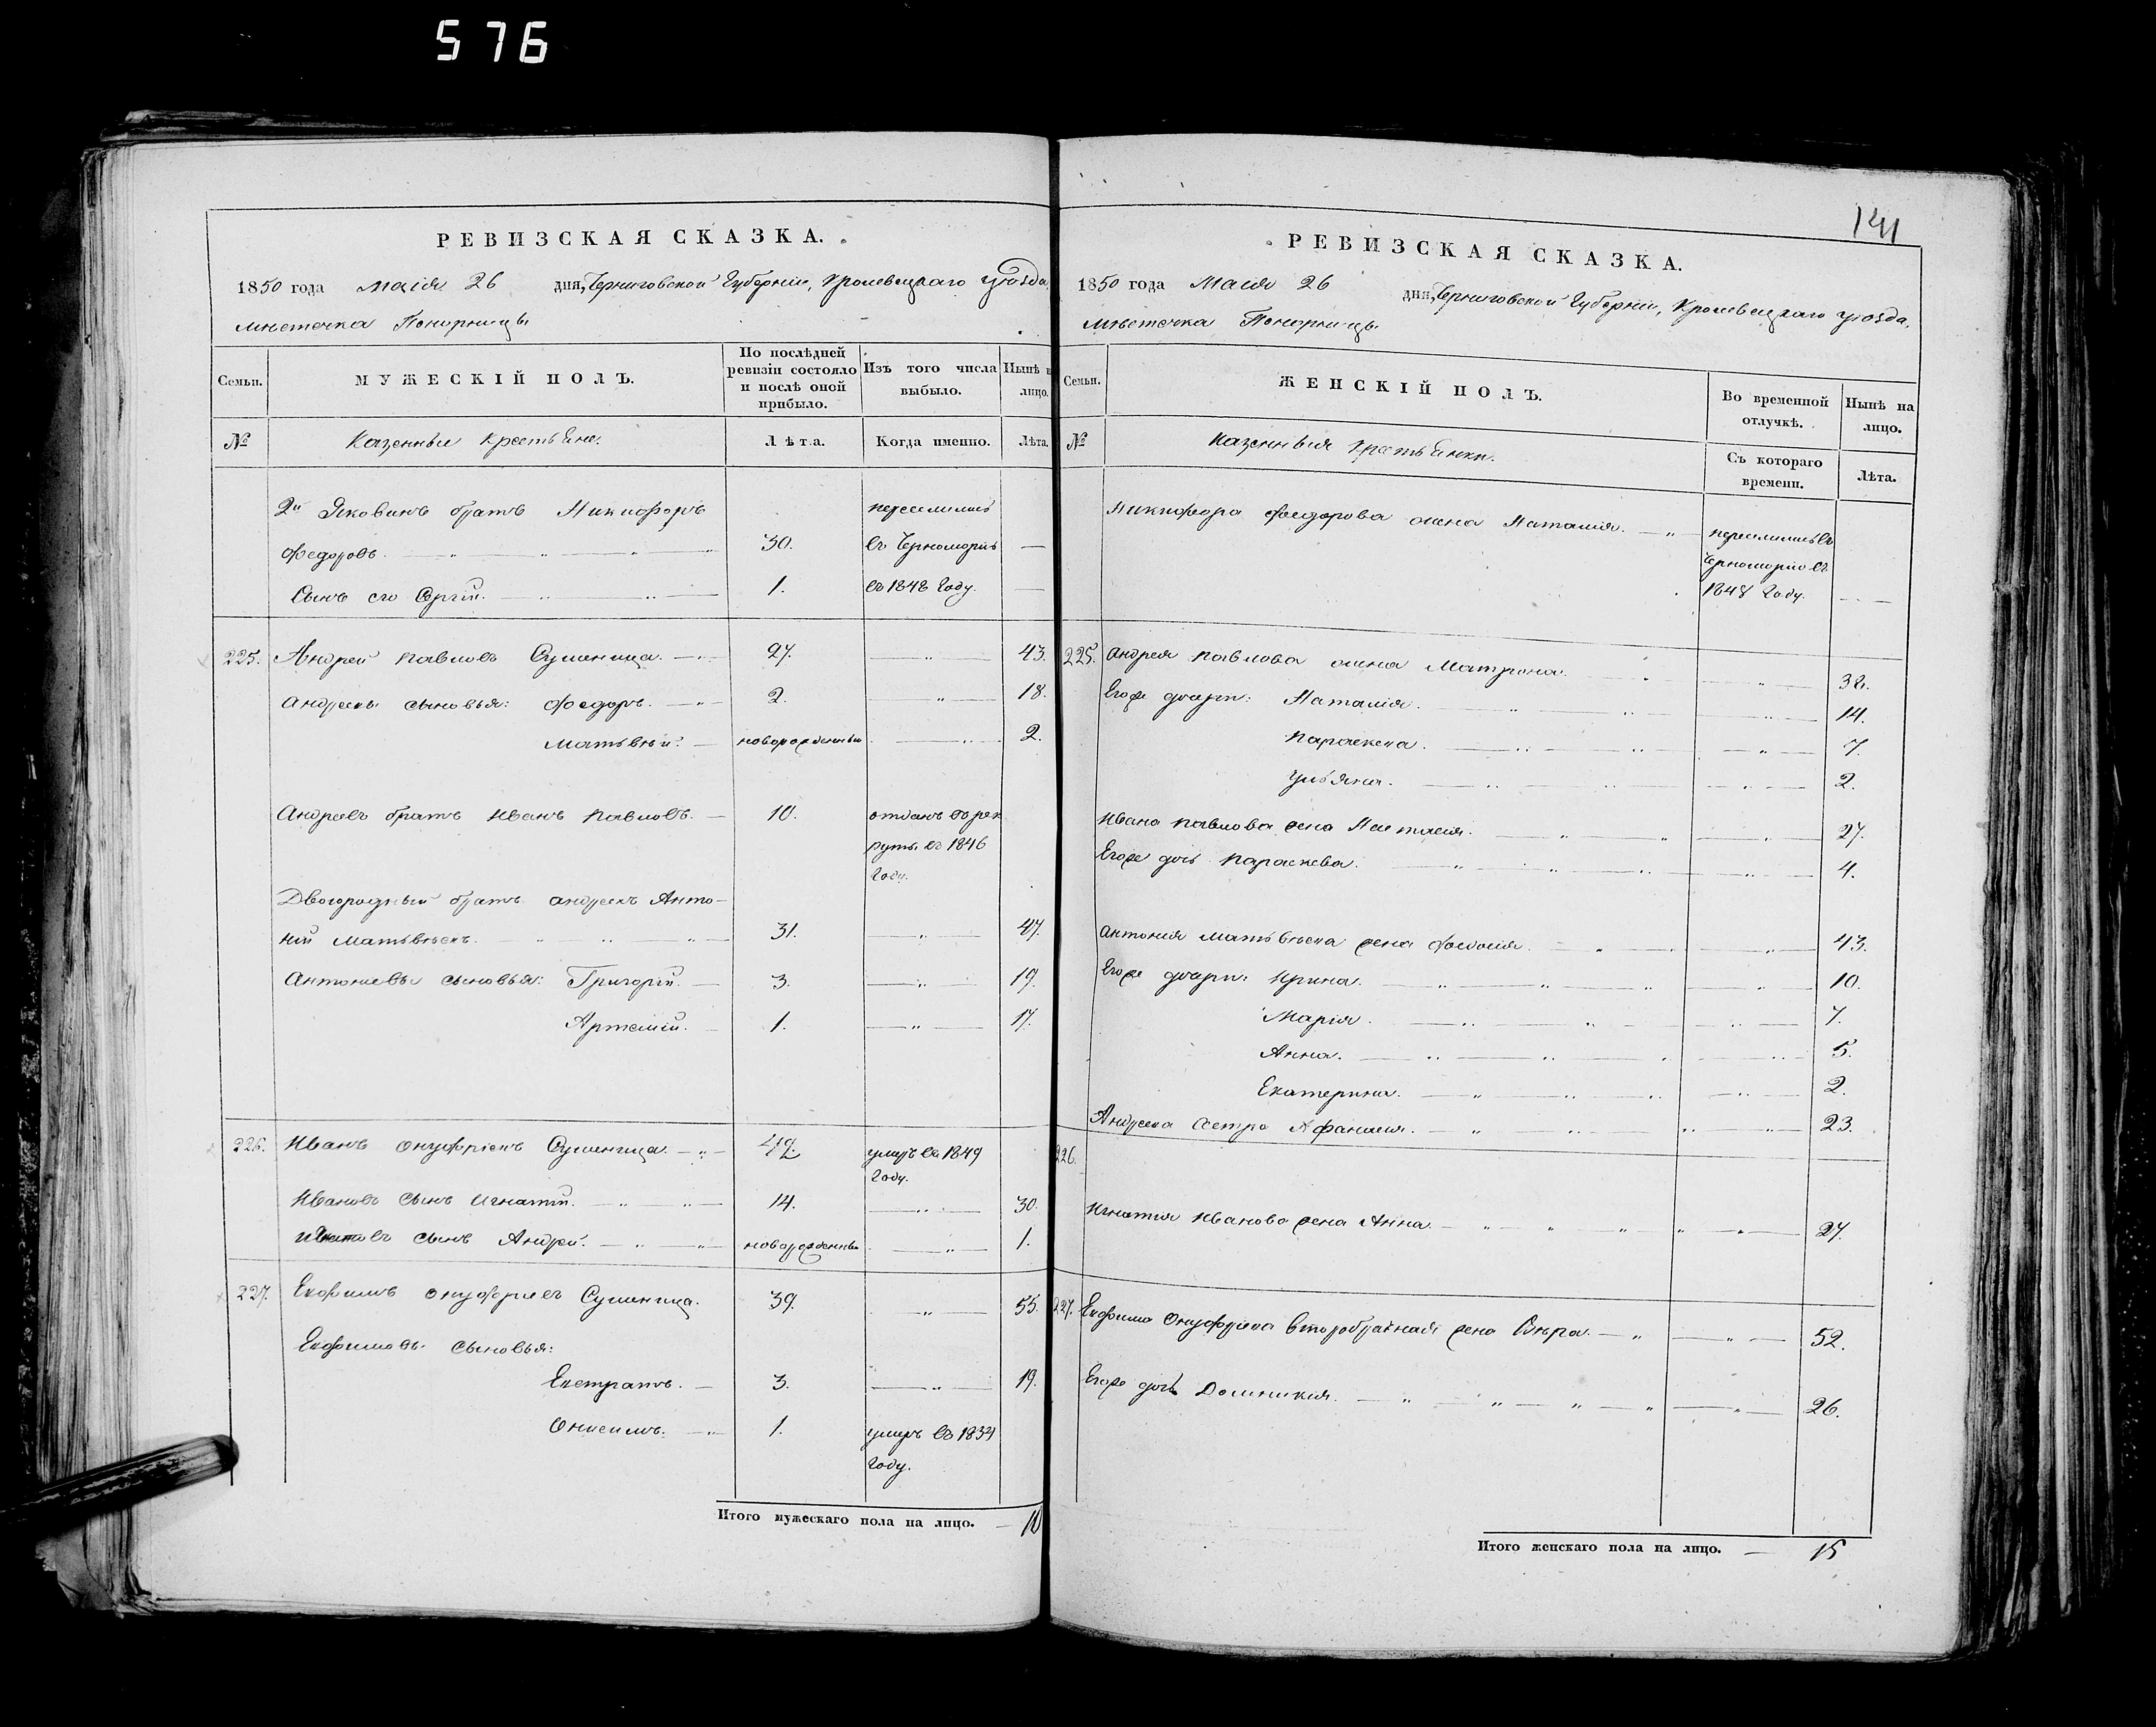 576
РЕВИЗСКАЯ СКАЗКА.
1850 года Маія 26 дня, Черниговской Губерніи, Кролевецкаго уѣзда,
мѣстечка Понорницы
Семьи. МУЖЕСКІЙ ПОЛЪ. По послѣдней ревизіи состояло и послѣ оной прибыло. Изъ того числа выбыло. Нынѣ на лицо.
№ Казенные крестьяне. Лѣта. Когда именно. Лѣта.
2й Яковинъ братъ Никифоръ переселились
Федоровъ. 30. въ Черноморію
Сынъ его Сергій. 1. въ 1848 году.
225. Андрей Павловъ Сушеница. 27. 43.
Андреевы сыновья: Федоръ. 2. 18.
Матвѣй. новорожденный 2.
Андреевъ братъ Иванъ Павловъ. 10. отданъ въ рек
руты въ 1846
году.
Двоюродный братъ Андреевъ Анто-
ній Матвѣевъ. 31. 47.
Антоніевы сыновья: Григорій. 3. 19.
Артемій. 1. 17.
226. Иванъ Онуфріевъ Сушеница. умеръ въ 1849
году.
Ивановъ сынъ Игнатій. 14. 30.
сынъ Андрей. новорожденный 1.
227. Евфимъ Онуфріевъ Сушеница. 39. 55.
Евфимовы сыновья:
Евстратъ. 3. 19.
Онисимъ. 1. умеръ въ 1834
году.
Итого мужескаго пола на лицо. 10
141
РЕВИЗСКАЯ СКАЗКА.
1850 года Маія 26 дня, Черниговской Губерніи, Кролевецкаго уѣзда,
мѣстечка Понорницы
Семьи. ЖЕНСКІЙ ПОЛЪ. Во временной отлучкѣ. Нынѣ на лицо.
№ Казенныя крестьянки. Съ котораго времени. Лѣта.
Никифора Федорова жена Наталія. переселились въ
Черноморію въ
1848 году.
225. Андрея Павлова жена Матрона. 38.
Его же дочери: Наталія. 14.
Параскева. 7.
Ульяна. 2.
Ивана Павлова жена Настасія. 27.
Его же дочь Параскева. 4.
Антонія Матвѣева жена Феодосія. 43.
Его же дочери: Ирина. 10.
Марія. 7.
Анна. 5.
Екатерина. 2.
Андреева сестра Афанасія. 23.
226.
Игнатія Иванова жена Анна. 27.
227. Евфима Онуфріева второбрачная жена Вѣра. 52.
Его же дочь Домникія. 26.
Итого женскаго пола на лицо. 15